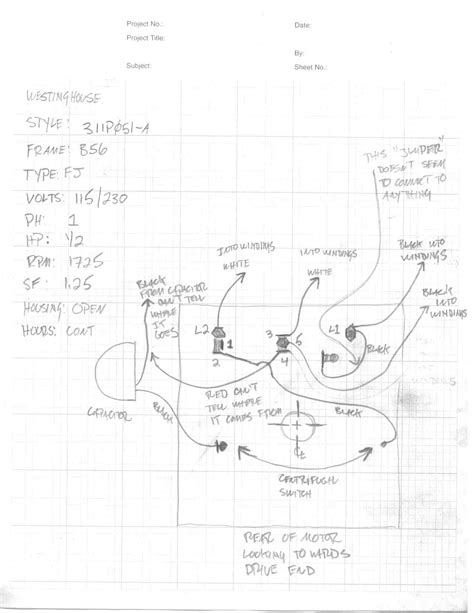 Project No.:
Date:
Project Title:
By:
Subject:
Sheet No.:
WESTINGHOUSE
STYLE: 311P051-A
FRAME: B56
TYPE: FJ
VOLTS: 115/230
PH: 1
HP: 1/2
RPM: 1725
SF: 1.25
HOUSING: OPEN
HOURS: CONT
THIS "JUMPER"
DOESN'T SEEM
TO CONNECT TO
ANYTHING
INTO WINDINGS
WHITE
INTO WINDINGS
WHITE
BLACK INTO
WINDINGS
BLACK
INTO
WINDINGS
BLACK
FROM CAPACITOR
CAN'T TELL
WHERE
IT
GOES
L2
1
2
3
5
4
L1
BLACK
CAPACITOR
BLACK
RED CAN'T
TELL WHERE
IT COMES FROM
BLACK
CENTRIFUGAL
SWITCH
REAR OF MOTOR
LOOKING TOWARDS
DRIVE END